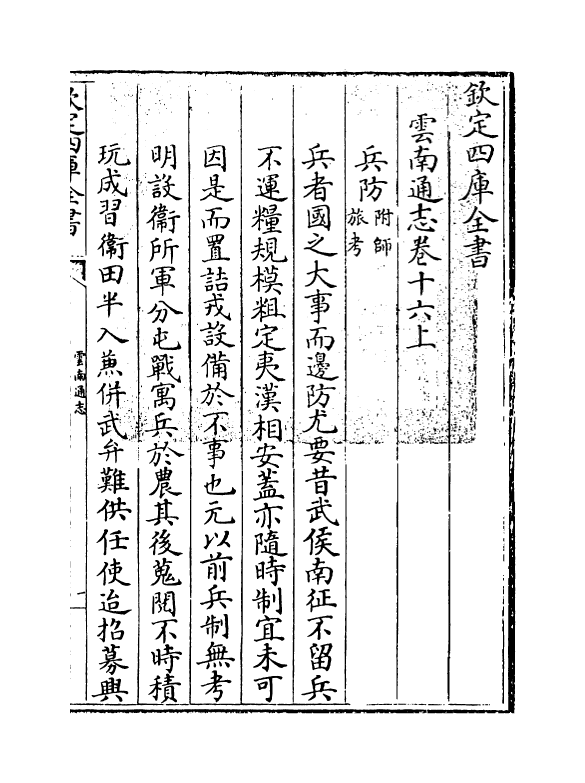 欽定四庫全書
雲南通志卷十六上
兵防附師旅考
兵者國之大事而邊防尤要昔武侯南征不留兵
不運糧規模粗定夷漢相安蓋亦隨時制宜未可
因是而置詰戎設備於不事也元以前兵制無考
明設衞所軍分屯戰寓兵於農其後蒐閱不時積
玩成習衞田半入蒹併武弁難供任使迨招募興
欽定四庫全書
雲南通志
一